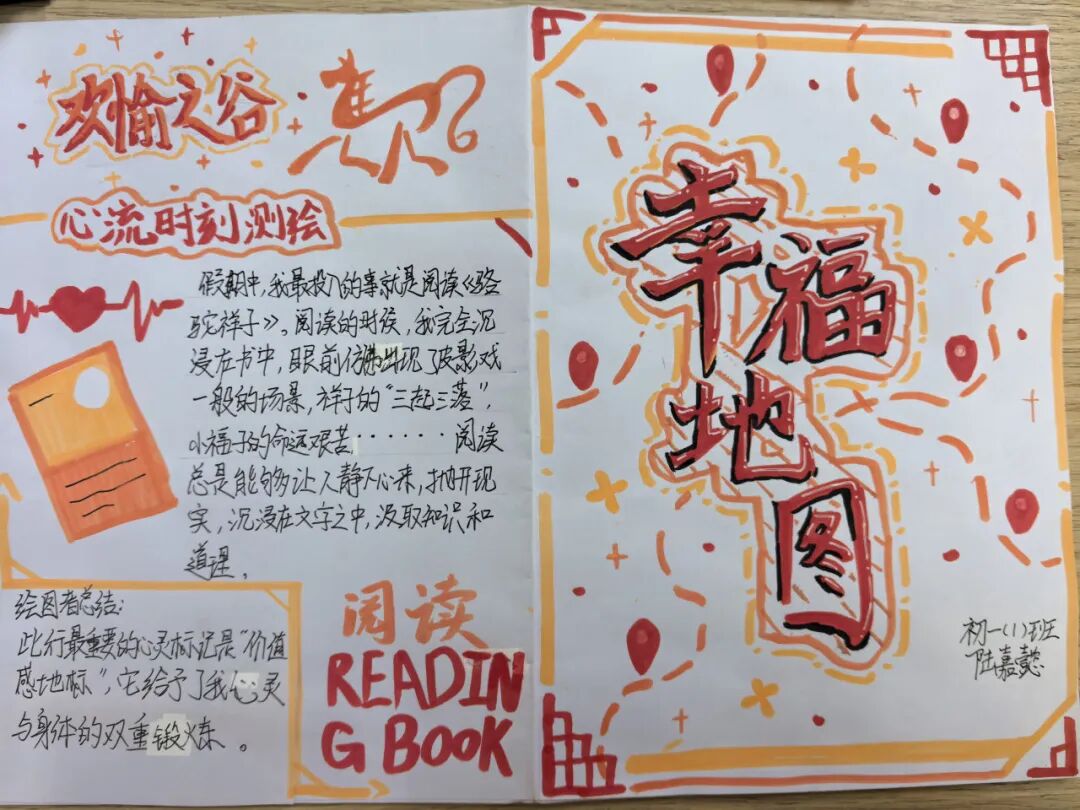 欢愉之谷
心流时刻测绘
假期中，我最投入的事就是阅读《骆
驼祥子》。阅读的时候，我完全沉
浸在书中，眼前仿佛出现了皮影戏
一般的场景，祥子的“三起三落”，
小福子的命运艰苦······阅读
总是能够多让人静下心来，抛开现
实，沉浸在文字之中，汲取知识和
道理。
绘图者总结：
此行最重要的心灵标记是“价值
感地标”，它给予了我心灵
与身体的双重锻炼。
阅读
READIN
G BOOK
幸福
地
图
初一(1)班
陆嘉懿